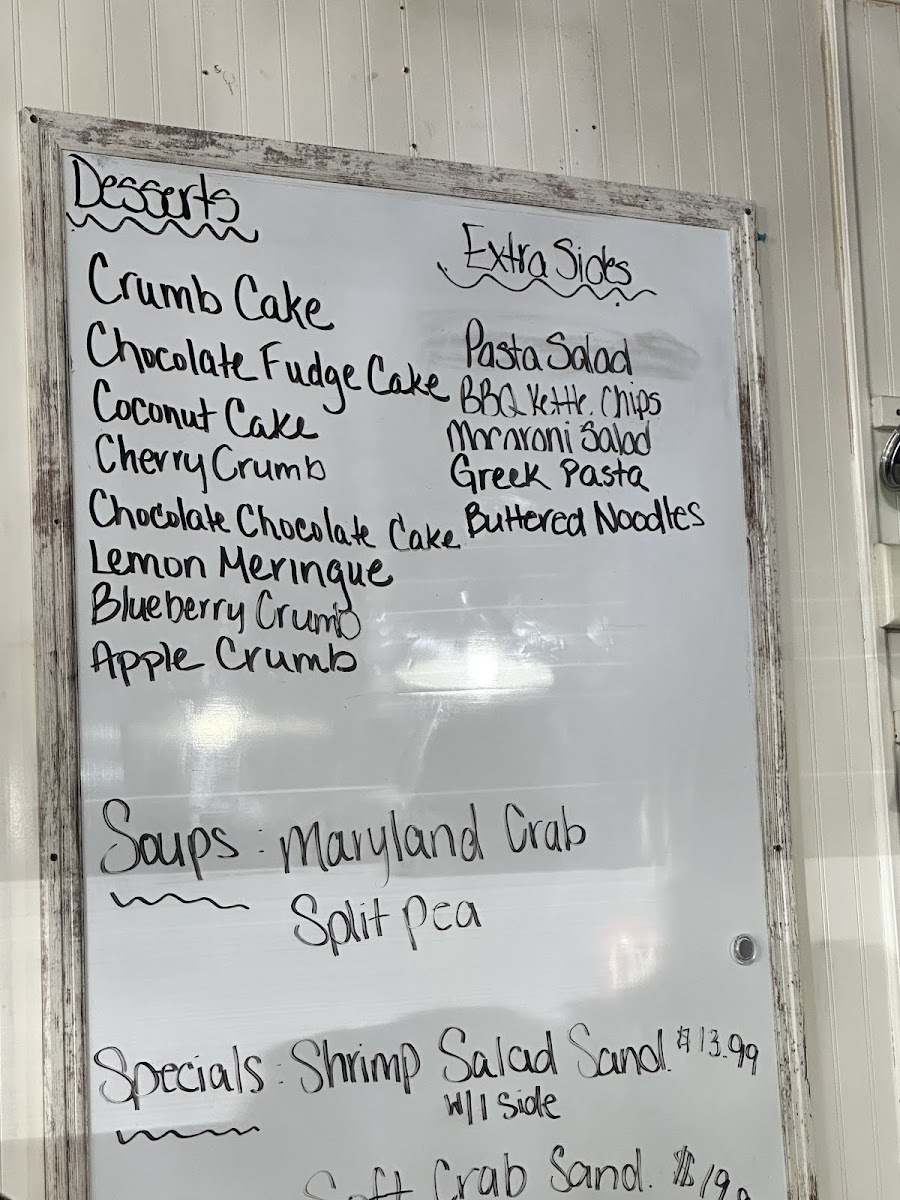 Desserts
Crumb Cake
Chocolate Fudge Cake
Coconut Cake
Cherry Crumb
Chocolate Chocolate Cake
Lemon Meringue
Blueberry Crumb
Apple Crumb
Extra Sides
Pasta Salad
BBQ Kettle Chips
Macaroni Salad
Greek Pasta
Buttered Noodles
Soups: Maryland Crab
Split Pea
Specials: Shrimp Salad Sand. $13.99
W/1 Side
Soft Crab Sand.